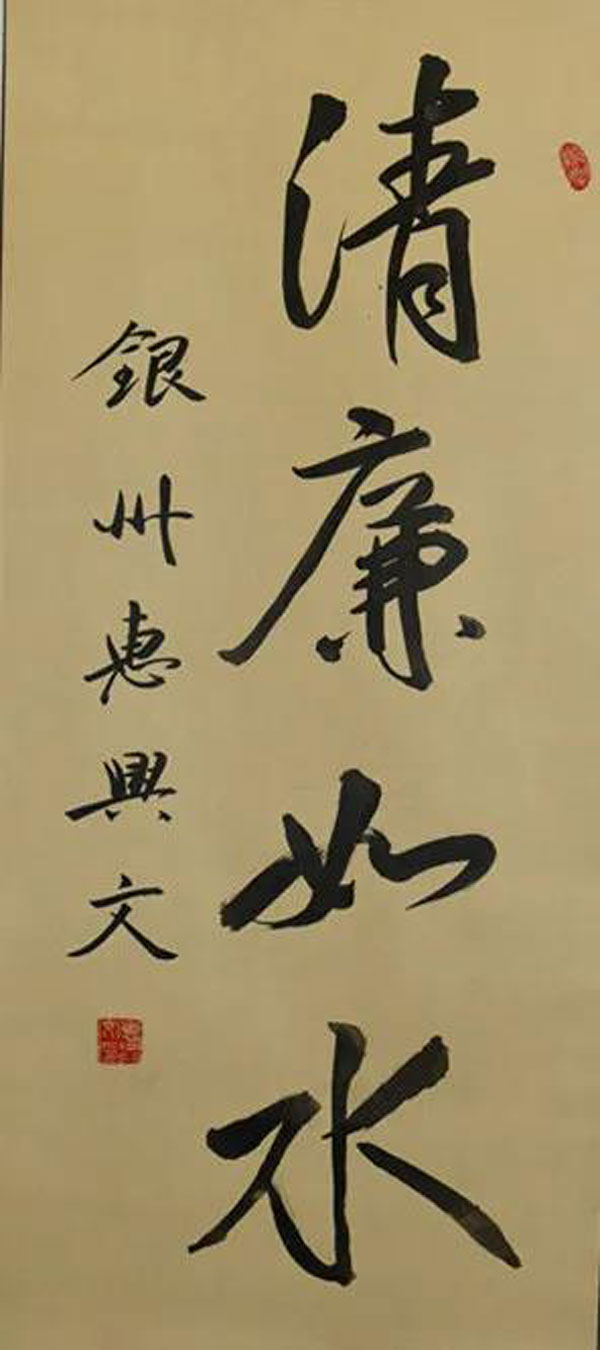 清廉如水
銀州惠興文